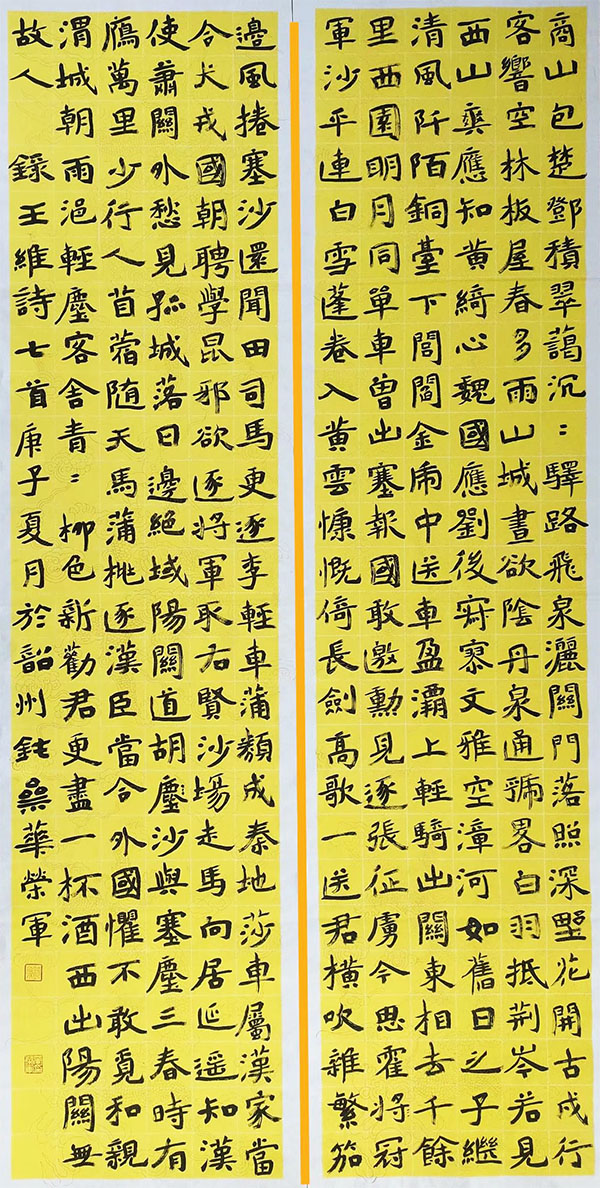 商山包楚鄧積翠藹沉〻驛路飛泉灑關門落照深墅花開古戍行
客響空林板屋春多雨山城晝欲陰丹泉通虢畧白羽抵荊岑若見
西山爽應知黃綺心魏國應劉後寂寥文雅空漳河如舊日之子繼
清風阡陌銅臺下閭閻金虎中送車盈灞上輕騎出關東相去千餘
里西園明月同單車曾出塞報國敢邀勳見逐張征虜今思霍將冠
軍沙平連白雪蓬卷入黃雲慷慨倚長劍高歌一送君橫吹雜繁笳
邊風捲塞沙還聞田司馬更逐李輕車蒲類成秦地莎車屬漢家當
令犬戎國朝聘學昆邪欲逐將軍取右賢沙場走馬向居延遙知漢
使蕭關外愁見孤城落日邊絕域陽關道胡塵沙與塞塵三春時有
鴈萬里少行人苜蓿隨天馬蒲桃逐漢臣當令外國懼不敢覓和親
渭城朝雨浥輕塵客舍青〻柳色新勸君更盡一杯酒西出陽關無
故人 錄王維詩七首庚子夏月於韶州鈍華榮軍